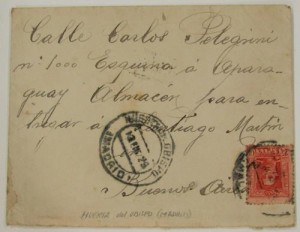 Calle Carlos Pelegrini
nº 1000 Esquina á Apara-
guay Almacén para en-
tregar á Santiago Martin
Buenos Aires
MADRID